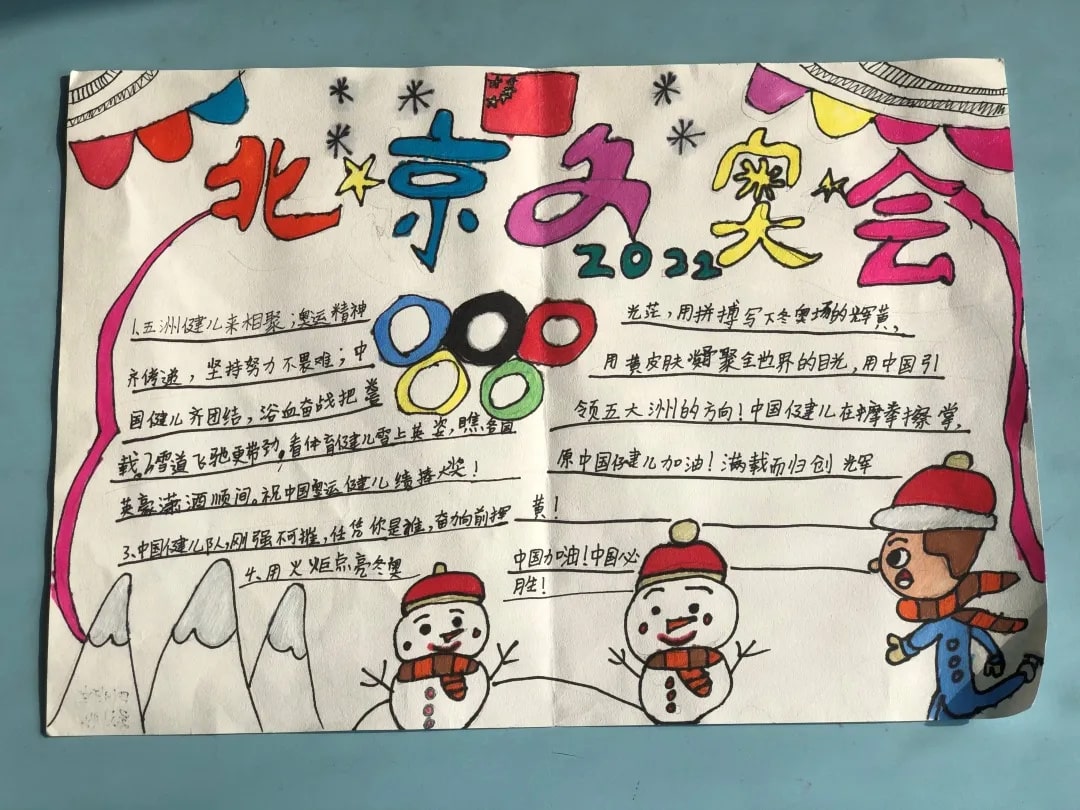 北京冬奥会
2022
1.五洲健儿来相聚;奥运精神
齐传递,坚持努力不畏难;中
国健儿齐团结,浴血奋战把誉
载。雪道飞驰更带劲,看体育健儿雪上英姿,瞧各国
英豪潇洒顺间。祝中国奥运健儿绩捧火奖!
3、中国健儿队,刚强不可摧,任凭你是谁,奋力向前挥
4、用火炬点亮冬奥
光茫,用拼搏写下冬奥场的辉黄,
用黄皮肤凝聚全世界的目光,用中国引
领五大洲的方向!中国健儿在摩拳擦掌,
原中国健儿加油!满载而归创辉
黄!
中国加油!中国必
胜!